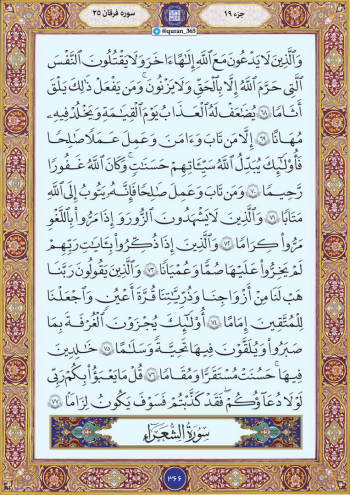 جزء ۱۹
@quran_365
سوره فرقان ۲۵
وَٱلَّذِينَ لَا يَدْعُونَ مَعَ ٱللَّهِ إِلَٰهًا ءَاخَرَ وَلَا يَقْتُلُونَ ٱلنَّفْسَ
ٱلَّتِي حَرَّمَ ٱللَّهُ إِلَّا بِٱلْحَقِّ وَلَا يَزْنُونَ ۚ وَمَن يَفْعَلْ ذَٰلِكَ يَلْقَ
أَثَامًا ۝٦٨ يُضَٰعَفْ لَهُ ٱلْعَذَابُ يَوْمَ ٱلْقِيَٰمَةِ وَيَخْلُدْ فِيهِۦ
مُهَانًا ۝٦٩ إِلَّا مَن تَابَ وَءَامَنَ وَعَمِلَ عَمَلًا صَٰلِحًا
فَأُو۟لَٰٓئِكَ يُبَدِّلُ ٱللَّهُ سَيِّـَٔاتِهِمْ حَسَنَٰتٍ ۗ وَكَانَ ٱللَّهُ غَفُورًا
رَّحِيمًا ۝٧٠ وَمَن تَابَ وَعَمِلَ صَٰلِحًا فَإِنَّهُۥ يَتُوبُ إِلَى ٱللَّهِ
مَتَابًا ۝٧١ وَٱلَّذِينَ لَا يَشْهَدُونَ ٱلزُّورَ وَإِذَا مَرُّوا۟ بِٱللَّغْوِ
مَرُّوا۟ كِرَامًا ۝٧٢ وَٱلَّذِينَ إِذَا ذُكِّرُوا۟ بِـَٔايَٰتِ رَبِّهِمْ
لَمْ يَخِرُّوا۟ عَلَيْهَا صُمًّا وَعُمْيَانًا ۝٧٣ وَٱلَّذِينَ يَقُولُونَ رَبَّنَا
هَبْ لَنَا مِنْ أَزْوَٰجِنَا وَذُرِّيَّٰتِنَا قُرَّةَ أَعْيُنٍ وَٱجْعَلْنَا
لِلْمُتَّقِينَ إِمَامًا ۝٧٤ أُو۟لَٰٓئِكَ يُجْزَوْنَ ٱلْغُرْفَةَ بِمَا
صَبَرُوا۟ وَيُلَقَّوْنَ فِيهَا تَحِيَّةً وَسَلَٰمًا ۝٧٥ خَٰلِدِينَ
فِيهَا ۚ حَسُنَتْ مُسْتَقَرًّا وَمُقَامًا ۝٧٦ قُلْ مَا يَعْبَؤُا۟ بِكُمْ رَبِّي
لَوْلَا دُعَآؤُكُمْ ۖ فَقَدْ كَذَّبْتُمْ فَسَوْفَ يَكُونُ لِزَامًا ۝٧٧
سُورَةُ الشُّعَرَاءِ
۳۶۶